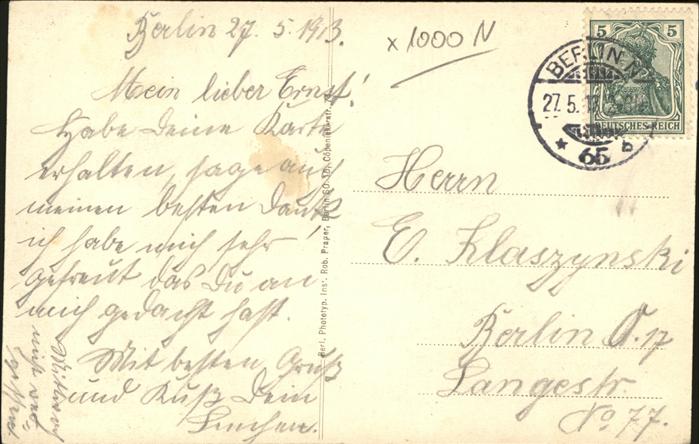 Berlin 27. 5. 1913.
Mein lieber Ernst!
Habe Deine Karte
erhalten, sage auch
meinen besten Dank
ich habe mich sehr
gefreut das Du an
mich gedacht hast.
Mit besten Gruß
und Kuß Dein
Linchen.
nicht
Berl. Phototyp. Inst. Rob. Prager, Berlin SO. 16, Cöpenickerstr.
x 1000 N
BERLIN N
27. 5. 13
* 65 b
5 5
DEUTSCHES REICH
Herrn
E. Klaszynski
Berlin O. 17
Langestr.
No 77.